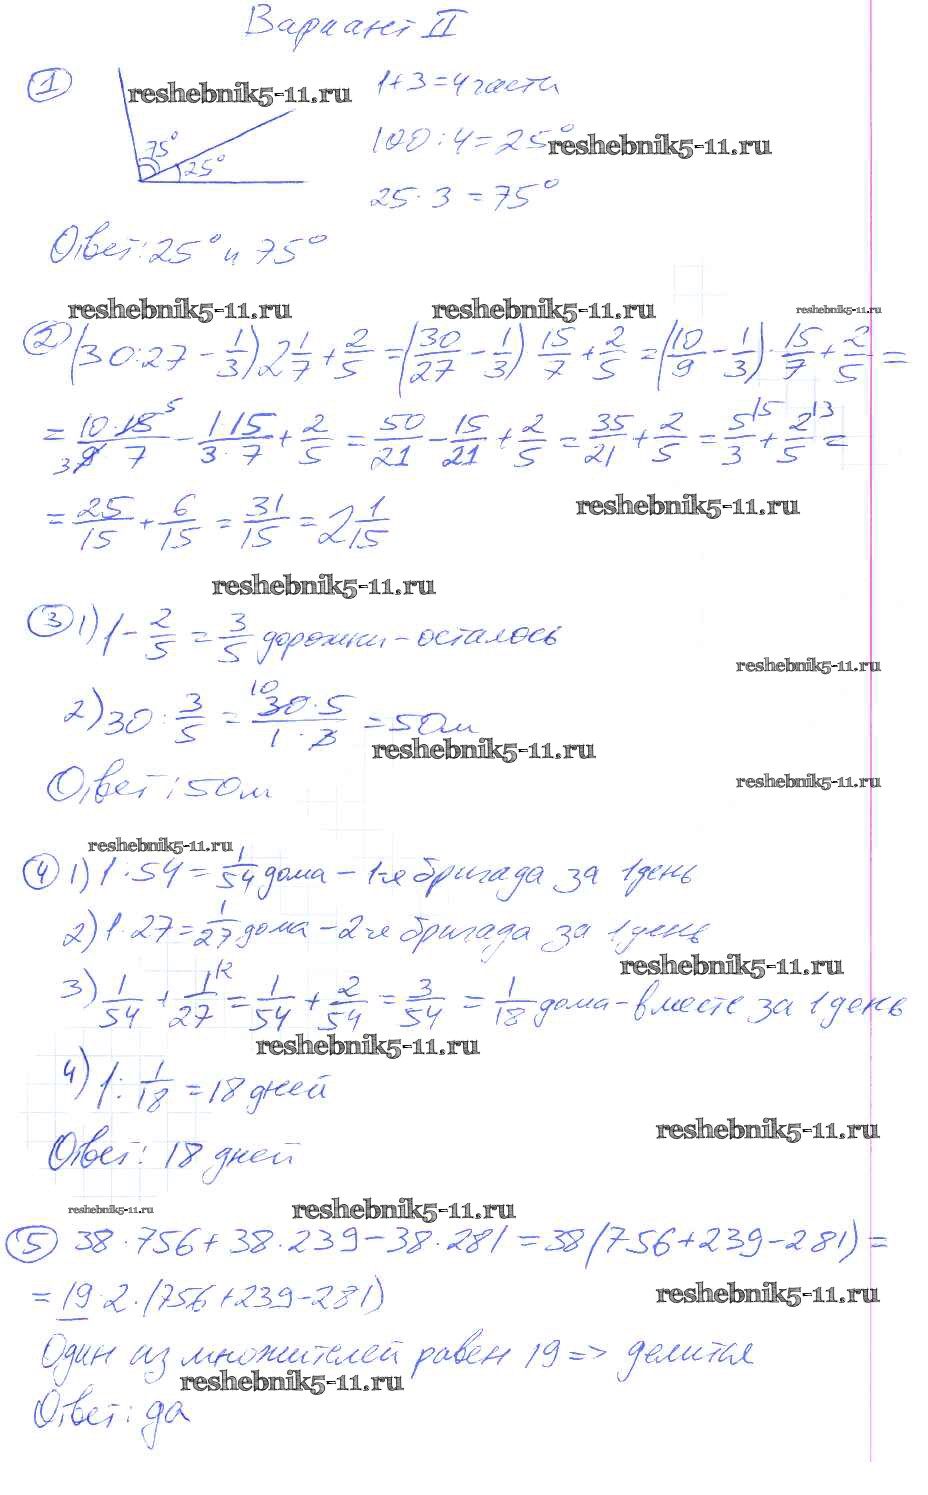 Вариант II
1 reshebnik5-11.ru 1+3=4 части
100:4=25° reshebnik5-11.ru
75° 25° 25·3=75°
Ответ: 25° и 75°
reshebnik5-11.ru reshebnik5-11.ru reshebnik5-11.ru
2 (30:27 - 1/3) 2 1/7 + 2/5 = (30/27 - 1/3) 15/7 + 2/5 = (10/9 - 1/3) · 15/7 + 2/5 =
= 10·15 5/3 9 7 - 1 15/3·7 + 2/5 = 50/21 - 15/21 + 2/5 = 35/21 + 2/5 = 5 |5/3 + 2 |3/5 =
= 25/15 + 6/15 = 31/15 = 2 1/15
reshebnik5-11.ru
reshebnik5-11.ru
3 1) 1 - 2/5 = 3/5 дорожки - осталось
reshebnik5-11.ru
2) 30 : 3/5 = 10 30·5/1·3 = 50м
reshebnik5-11.ru
Ответ: 50м
reshebnik5-11.ru
reshebnik5-11.ru
4 1) 1:54 = 1/54 дома - 1-я бригада за 1 день
2) 1:27 = 1/27 дома - 2-я бригада за 1 день
reshebnik5-11.ru
3) 1/54 + 1 |2/27 = 1/54 + 2/54 = 3/54 = 1/18 дома - вместе за 1 день
reshebnik5-11.ru
4) 1 : 1/18 = 18 дней
reshebnik5-11.ru
Ответ: 18 дней
reshebnik5-11.ru reshebnik5-11.ru
5 38·756+38·239-38·281=38(756+239-281)=
=19·2·(756+239-281)
reshebnik5-11.ru
Один из множителей равен 19 => делится
reshebnik5-11.ru
Ответ: да